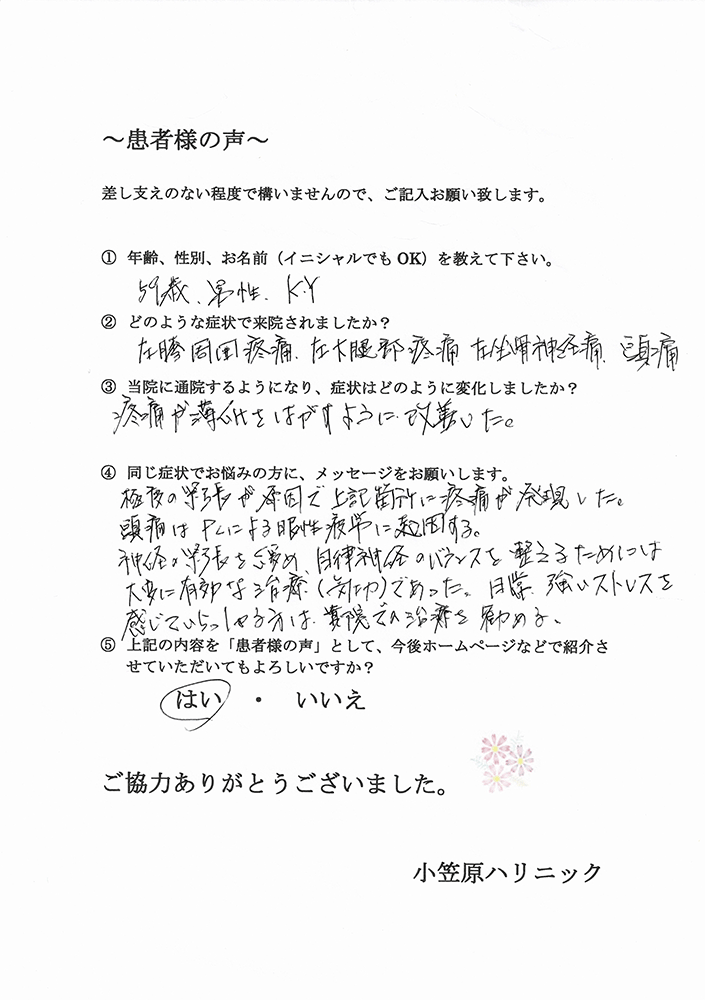 ～患者様の声～
差し支えのない程度で構いませんので、ご記入お願い致します。
① 年齢、性別、お名前（イニシャルでも OK）を教えて下さい。
59歳、男性、K.Y
② どのような症状で来院されましたか？
左膝周囲疼痛、左大腿部疼痛 左坐骨神経痛、頭痛
③ 当院に通院するようになり、症状はどのように変化しましたか？
疼痛が薄紙をはがすように改善した。
④ 同じ症状でお悩みの方に、メッセージをお願いします。
極度の緊張が原因で上記箇所に疼痛が発現した。
頭痛はPCによる眼性疲労に起因する。
神経の緊張を緩め、自律神経のバランスを整えるためには
大変に有効な治療（気功）であった。日常、強いストレスを
感じていらっしゃる方は、貴院での治療を勧める。
⑤ 上記の内容を「患者様の声」として、今後ホームページなどで紹介さ
せていただいてもよろしいですか？
はい ・ いいえ
ご協力ありがとうございました。
小笠原ハリニック